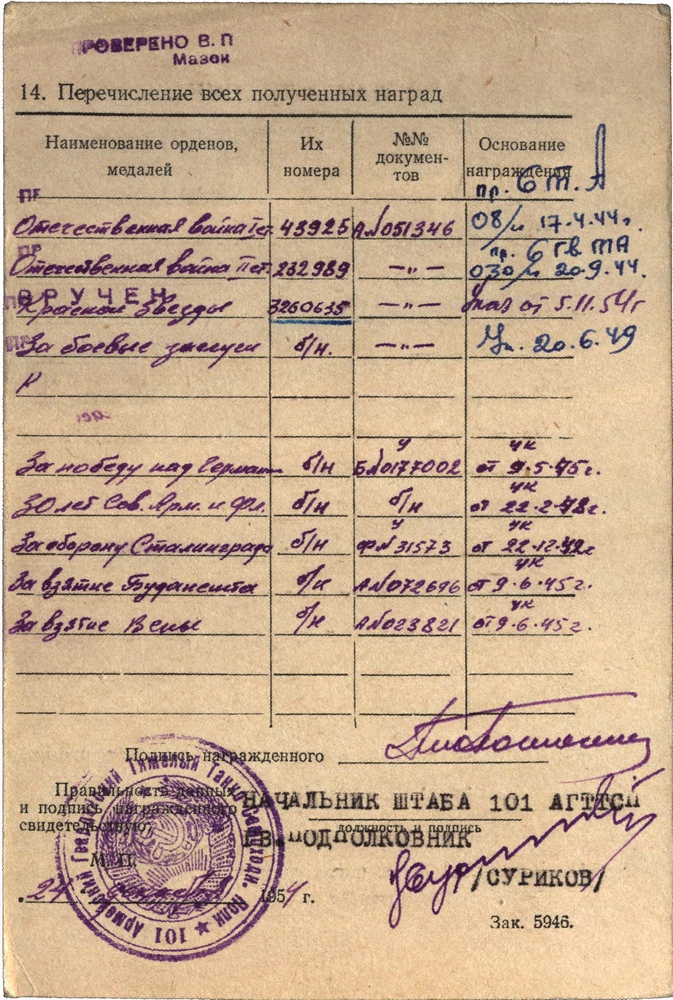 ПРОВЕРЕНО В. П
Мазок
14. Перечисление всех полученных наград
Наименование орденов, медалей Их номера №№ документов Основание награждения
пр. 6 Т. А
Отечественная война I ст. 43925 А№051346 08/н 17.4.44г.
пр. 6 Гв ТА
Отечественная война II ст. 232989 —„— 030/н 20.9.44.
ВРУЧЕН
Красной звезды 3260635 —„— Указ от 5.11.54г
За боевые заслуги б/н. —„— Ук. 20.6.49
У УК
За победу над Герман б/н Б№0177002 от 9.5.45г.
УК
30 лет Сов. Арм. и Фл. б/н б/н от 22.2.48г.
У УК
За оборону Сталинграда б/н Ф№31573 от 22.12.42г
УК
За взятие Будапешта б/н А№072696 от 9.6.45г.
УК
За взятие Вены б/н А№023821 от 9.6.45г.
Подпись награжденного
Правильность данных
и подпись награжденного
свидетельствую:
НАЧАЛЬНИК ШТАБА 101 АГТТСП
должность и подпись
ГВ. ПОДПОЛКОВНИК
М. П.
/СУРИКОВ/
„24 1954 г.
Зак. 5946.
101 Армейский Гвардейский Тяжелый Танко-Самоходн. Полк